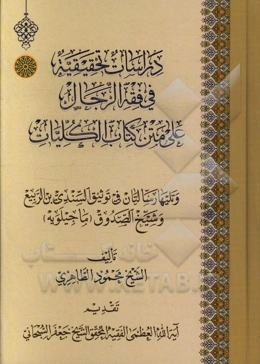 دراسات تحقيقية
في فقه الرجال
على متن كتاب الكليات
وتليها رسالتان في توثيق السندي بن الربيع
وشيخ الصدوق (ماجيلويه)
تأليف
الشيخ محمود الطاهري
تقديم
آية الله العظمى الفقيه المحقق الشيخ جعفر السبحاني